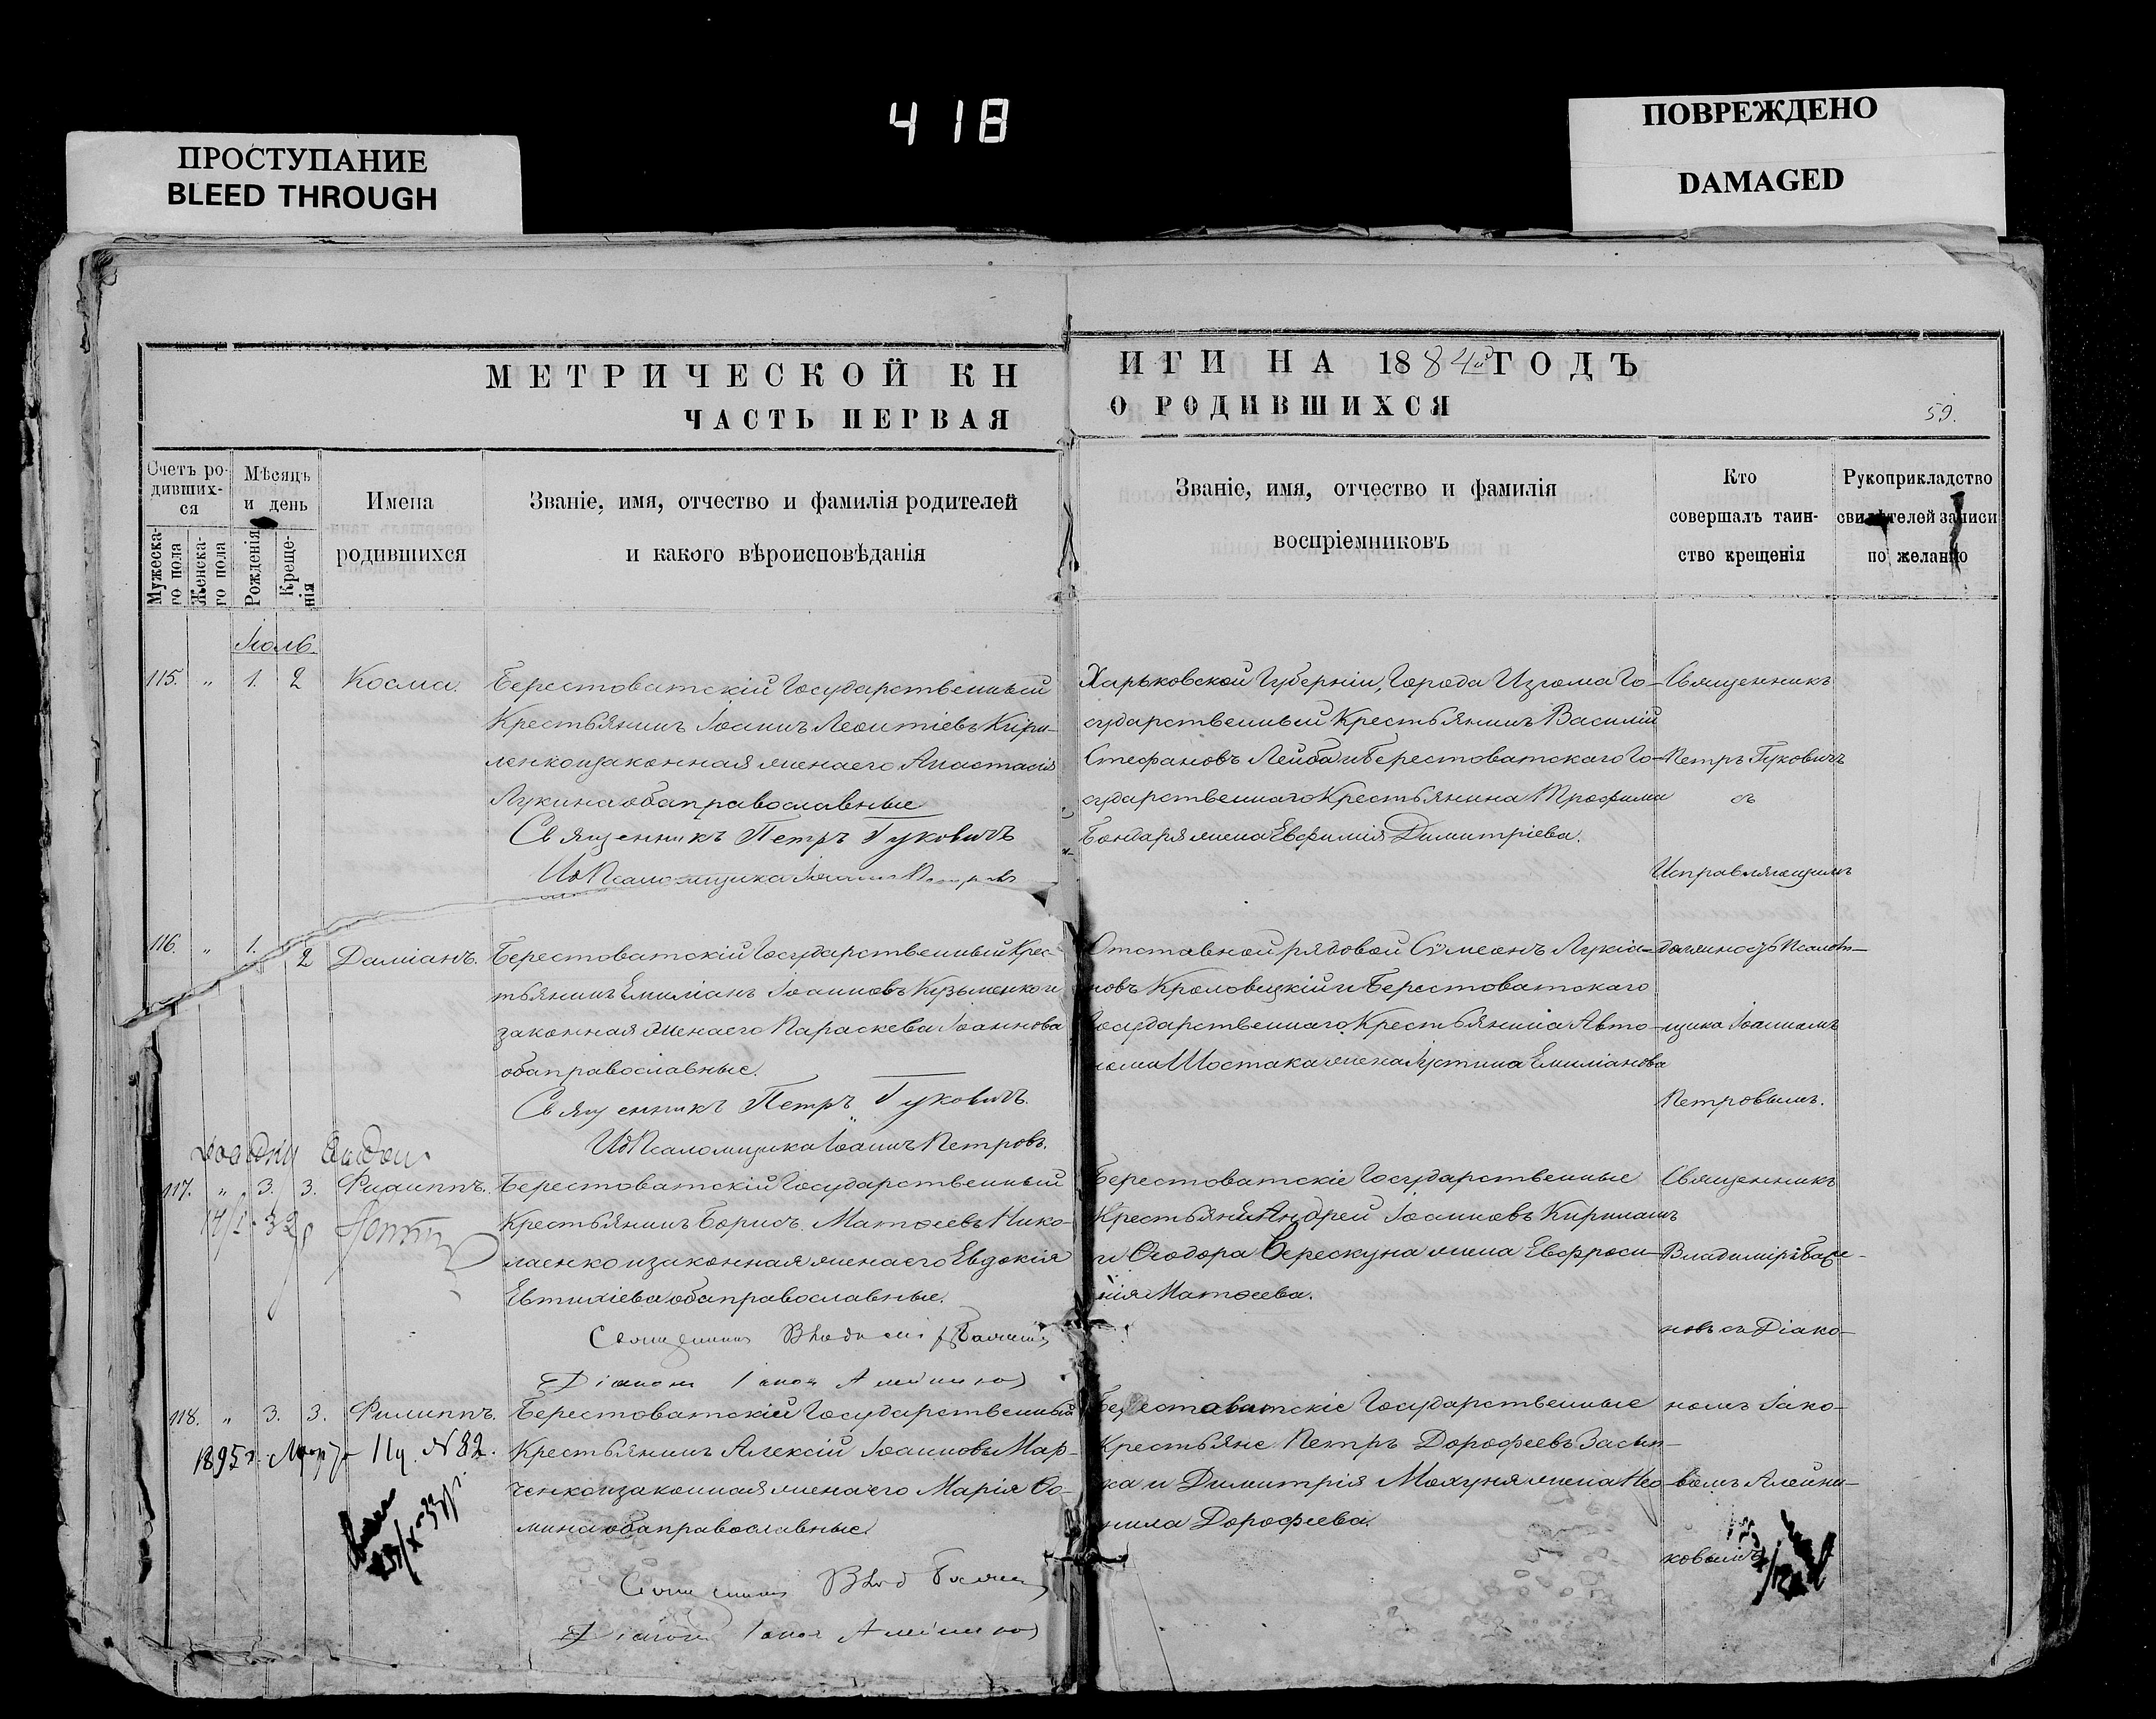 418
ПРОСТУПАНИЕ
BLEED THROUGH
ПОВРЕЖДЕНО
DAMAGED
МЕТРИЧЕСКОЙ КН
ИГИ НА 1884й ГОДЪ
ЧАСТЬ ПЕРВАЯ
О РОДИВШИХСЯ
59.
Счетъ ро-
дивших-
ся
Мужеска-
го пола
Женска-
го пола
Мѣсяцъ
и день
Рожденія
Креще-
нія
Имена
родившихся
Званіе, имя, отчество и фамилія родителей
и какого вѣроисповѣданія
Званіе, имя, отчество и фамилія
воспріемниковъ
Кто
совершалъ таин-
ство крещенія
Рукоприкладство
свидѣтелей записи
по желанію
Іюль.
115. " 1. 2 Косма.
Берестоватскій Государственный
Крестьянинъ Іоаннъ Леонтіевъ Кири-
ленко и законная жена его Анастасія
Лукина оба православные
Священникъ Петръ Гуковичъ
Ид Псаломщика Іоаннъ Петровъ
Харьковской Губерніи, Города Изюма Го-
сударственный Крестьянинъ Василій
Стефановъ Лейба и Берестоватскаго Го-
сударственнаго Крестьянина Трофима
Бондаря жена Евфимія Димитріева.
Священникъ
Петръ Гуковичъ
съ
Исправляющимъ
116. " 1. 2 Даміанъ.
Берестоватскій Государственный Крес-
тьянинъ Емиліанъ Іоанновъ Кузьменко и
законная жена его Параскева Іоаннова
оба православные.
Священникъ Петръ Гуковичъ.
Ид Псаломщика Іоаннъ Петровъ.
Отставной рядовой Сѵмеонъ Лукіа-
новъ Кроловецкій и Берестоватскаго
Государственнаго Крестьянина Авто-
нома Шостака жена Іустина Емиліанова
должность Псалом-
щика Іоанномъ
Петровымъ.
117. " 3. 3. Филиппъ.
14/I 32
Берестоватскій Государственный
Крестьянинъ Борисъ Матѳеевъ Нико-
лаенко и законная жена его Евдокія
Евтихіева оба православные.
Священникъ
Діаконъ
Берестоватскіе Государственные
Андрей Іоанновъ
и Ѳеодора Берескуна жена Евфроси-
нія Матѳеева.
Священникъ
Владиміръ
новъ съ Діако-
118. " 3. 3. Филиппъ.
1895 г. № 82.
Берестоватскій Государственный
Крестьянинъ Алексій Іоанновъ Мар-
ченко и законная жена его Марія Ѳо-
мина оба православные.
Священникъ
Діаконъ
Берестоватскіе Государственные
Крестьяне Петръ Дорофеевъ Засып-
ка и Димитрія Мохуня жена Нео-
нила Дорофеева.
номъ Іако-
вомъ Алейни-
ковымъ